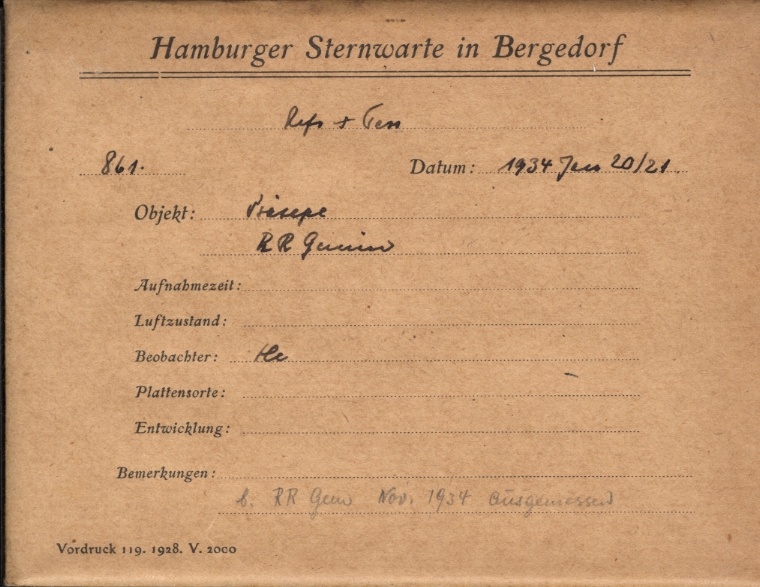 Hamburger Sternwarte in Bergedorf
861.
Datum: 1934 Jan 20/21.
Objekt: Präsepe
RR Gemin
Aufnahmezeit:
Luftzustand:
Beobachter:
Plattensorte:
Entwicklung:
Bemerkungen:
RR Gem Nov. 1934 ausgemessen
Vordruck 119. 1928. V. 2000